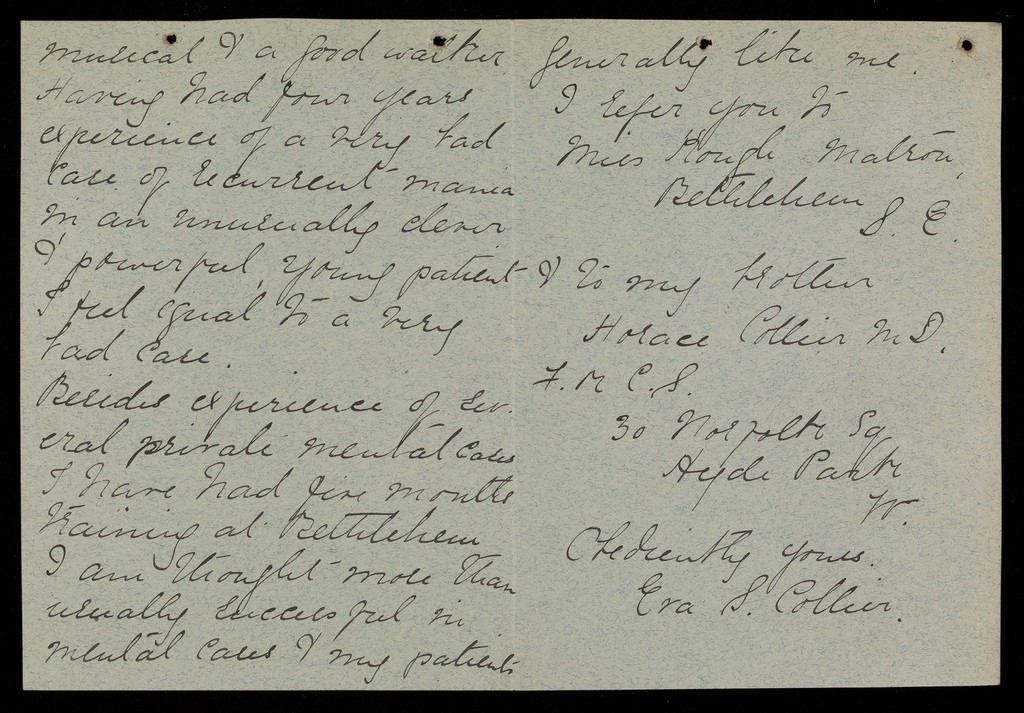 musical & a good walker.
Having had four years
experience of a very bad
case of recurrent mania
in an unusually clever
& powerful, young patient
I feel equal to a very
bad case.
Besides experience of sev-
eral private mental cases
I have had five months
training at Bethlehem
I am thought more than
usually successful in
mental cases & my patients
generally like me.
I refer you to
Miss Matron,
Bethlehem
S. E.
& to my brother
Horace Collier M D.
F. R C. S.
30 Norfolk Sq
Hyde Park
W.
Obediently yours.
Eva S. Collier.